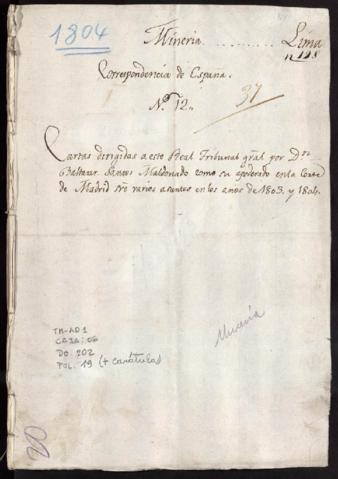 1804
Mineria ......... Lima
n 125
Correspondencia de España.
N.º 12.
37
Cartas dirigidas a este Real Tribunal gral por Dn
Baltasar Santos Maldonado como su apoderado en la Corte
de Madrid sre varios asuntos en los años de 1803. y 1804.
Mineria
TM-AD1
CAJA: 06
DO: 202
FOL: 19 (+ carátula)